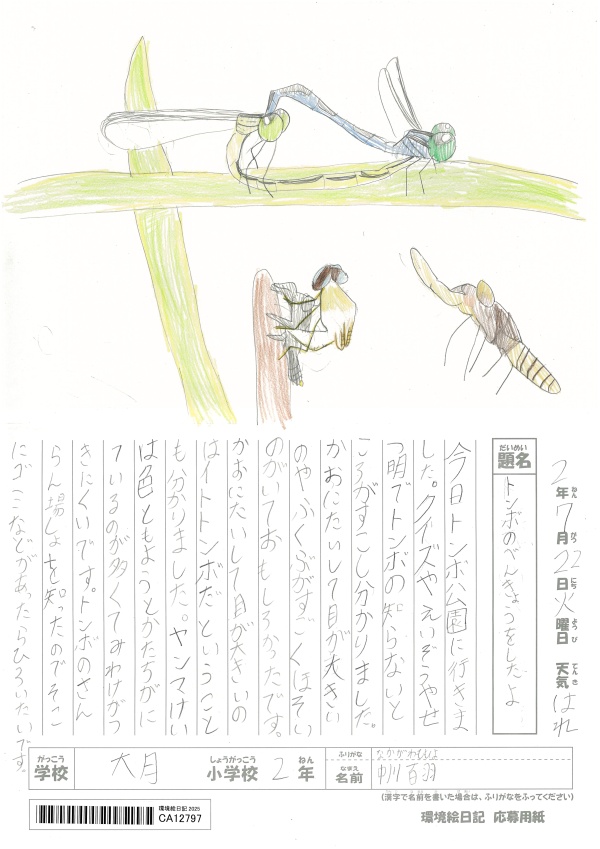 2年7月22日火曜日 天気はれ
ねん がつ にち ようび てんき
だいめい
題名 トンボのべんきょうをしたよ
今日トンボ公園に行きま
した。クイズやえいぞうやせ
つ明でトンボの知らないと
ころがすこし分かりました。
かおにたいして目が大きい
のやふくぶがすごくほそい
のがいておもしろかったです。
かおにたいして目が大きいの
はイトトンボだということ
も分かりました。ヤンマけい
は色ともようとかたちがに
ているのが多くてみわけがつ
きにくいです。トンボのさん
らん場しょを知ったのでそこ
にヨゴなどがあったらひろいたいです。
がっこう しょうがっこう ねん
学校 大月 小学校 2年
ふりがな なかがわももは
なまえ
名前 中川百羽
(漢字で名前を書いた場合は、ふりがなをふってください)
環境絵日記 2025
CA12797
環境絵日記 応募用紙